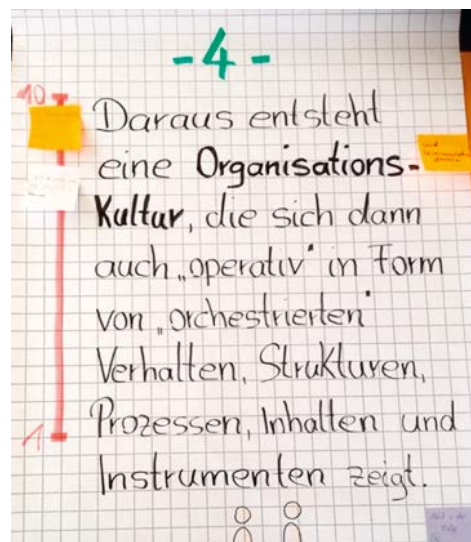 - 4 -
10
Daraus entsteht
eine Organisations-
Kultur, die sich dann
auch „operativ“ in Form
von „orchestrierten“
Verhalten, Strukturen,
Prozessen, Inhalten und
1
Instrumenten zeigt.